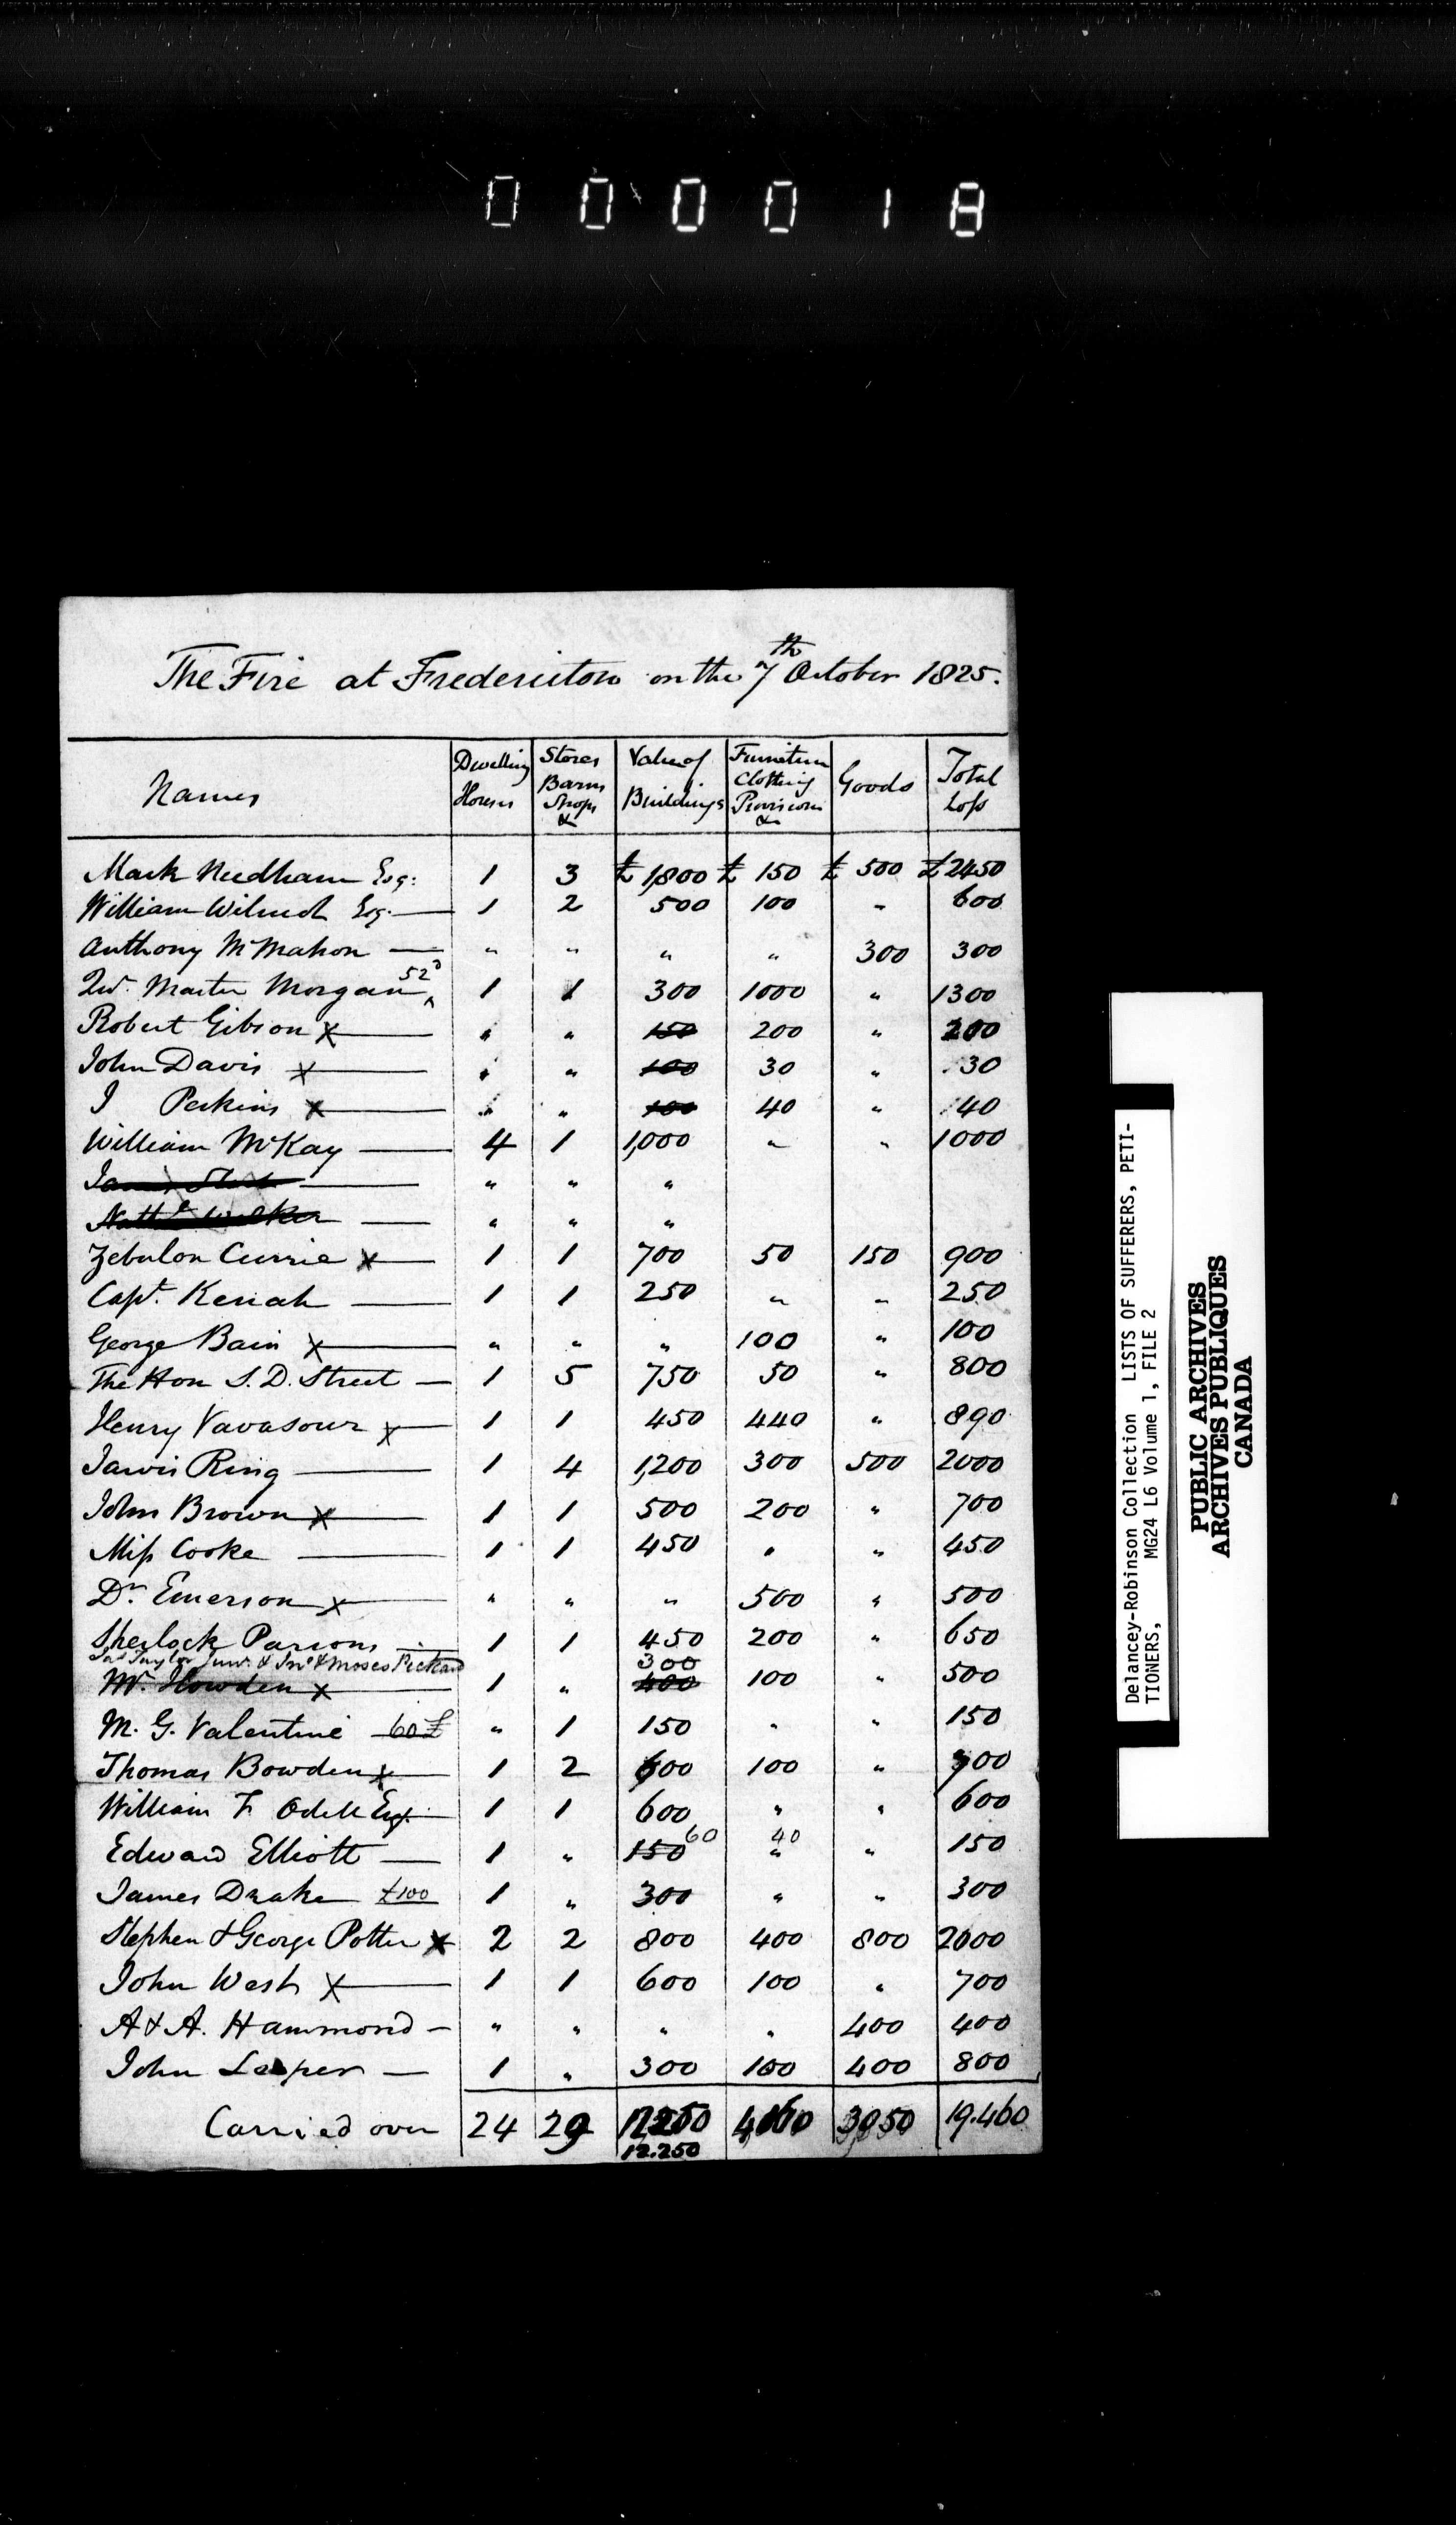 0 0 0 0 1 8
The Fire at Fredericton on the 7th October 1825.
Names | Dwelling Houses | Stores Barns Shops & | Value of Buildings | Furniture Clothing Provisions & | Goods | Total Loss
Mark Needham Esq: 1 3 £1,800 £ 150 £ 500 £2450
William Wilmot Esq. 1 2 500 100 " 600
Anthony McMahon " " " " 300 300
Qr. Master Morgan 52d 1 1 300 1000 " 1300
Robert Gibson X " " 150 200 " 200
John Davis X " " 100 30 " 30
J Perkins X " " 100 40 " 40
William McKay 4 1 1,000 " " 1000
" " "
" " "
Zebulon Currie X 1 1 700 50 150 900
Capt. Kenah 1 1 250 " " 250
George Bain X " " " 100 " 100
The Hon S. D. Street 1 5 750 50 " 800
Henry Vavasour X 1 1 450 440 " 890
Jarvis Ring 1 4 1,200 300 500 2000
John Brown X 1 1 500 200 " 700
Miss Cooke 1 1 450 " " 450
Dr. Emerson X " " " 500 " 500
Sherlock Parsons 1 1 450 200 " 650
Taylor Junr. & Jno & Moses Pickard 300
Mr. Howden X 1 " 400 100 " 500
M. G. Valentine 60£ " 1 150 " " 150
Thomas Bowden X 1 2 600 100 " 700
William F Odell Esq. 1 1 600 " " 600
Edward Elliott 1 " 150 60 " 40 " 150
James Drake £100 1 " 300 " " 300
Stephen & George Potter X 2 2 800 400 800 2000
John West X 1 1 600 100 " 700
A & A. Hammond " " " " 400 400
John Leaper 1 " 300 100 400 800
Carried over 24 29 4,160 3050 19.460
12.250
Delancey-Robinson Collection LISTS OF SUFFERERS, PETI-
TIONERS, MG24 L6 Volume 1, FILE 2
PUBLIC ARCHIVES
ARCHIVES PUBLIQUES
CANADA